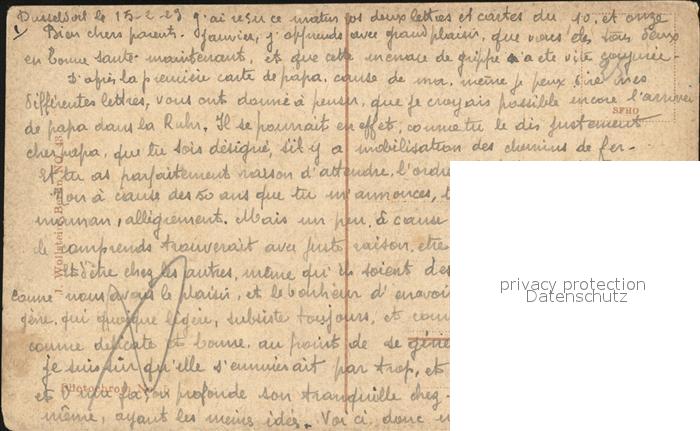 Dusseldorf le 15-2-23 j'ai reçu ce matin vos deux lettres et cartes du 10, et onze
Bien chers parents. Janvier, j'apprends avec grand plaisir, que vous êtes tous deux
en bonne santé maintenant, et que cette menace de grippe a été vite
D'après la première carte de papa, cause de moi, même je peux dire mes
différentes lettres, vous ont donné à penser, que je croyais possible encore l'arrivée
SFHO
de papa dans la Ruhr. Il se pourrait en effet, comme tu le dis justement
cher papa, que tu sois désigné, s'il y a mobilisation des chemins de fer.
Et tu as parfaitement raison d'attendre, l'ordre
Non à cause des 50 ans que tu m'annonces,
maman, allègrement. Mais un peu, à cause
le comprends trouverait avec juste raison, être
et d'être chez les autres, même qu'ils soient des
Comme nous avons le plaisir, et le bonheur d'en avoir
gêne, qui quoique légère, subsiste toujours, et
comme délicate et bonne, au point de se gêner
je suis sûr qu'elle s'ennuierait par trop, et
et d'une façon profonde son tranquille chez-
même, ayant les mêmes idées. Voici donc
J. Wollstein, Berlin
Photochrom
privacy protection
Datenschutz